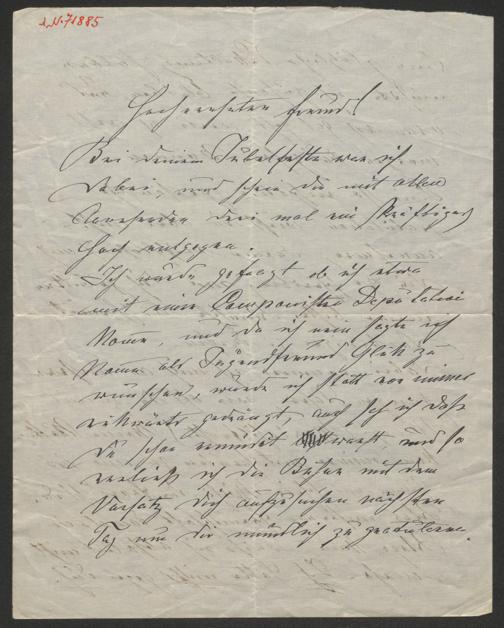 Hochverehrter Freund!
Bei deinem Jubelfeste war ich
dabei, und schrie dir mit allen
Anwesenden drei mal ein kräftiges
Hoch entgegen.
Ich wurde gefragt ob ich etwa
mit einer Componisten Deputation
komme, und da ich nein sagte ich
komme als Jugendfreund Glük zu
wünschen, wurde ich statt vor immer
rükwärts gedrängt, auch sah ich daß
du schon ermüdet warst und so
verließ ich die Bühne mit dem
Vorsatz dich aufzusuchen nächsten
Tag um dir mündlich zu gratulieren.